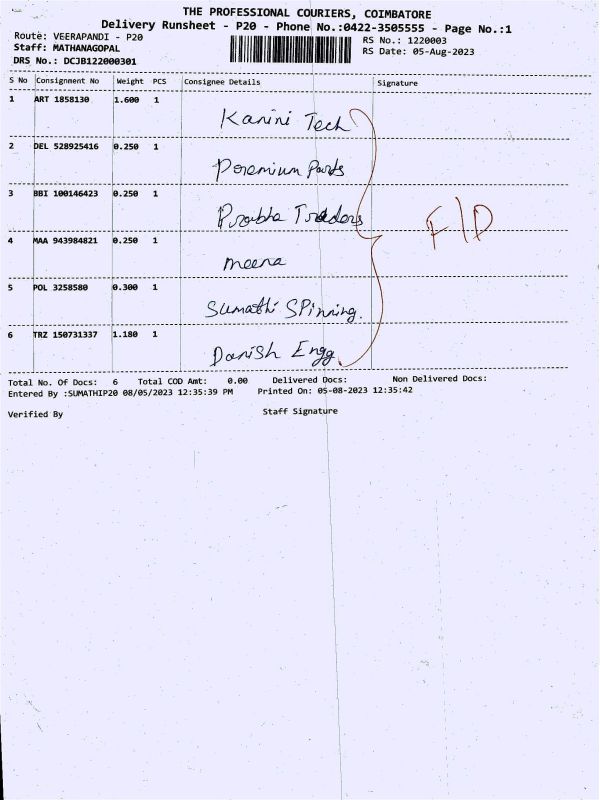 THE PROFESSIONAL COURIERS, COIMBATORE
Delivery Runsheet - P20 - Phone No.:0422-3505555 - Page No.:1
Route: VEERAPANDI - P20
RS No.: 1220003
Staff: MATHANAGOPAL
RS Date: 05-Aug-2023
DRS No.: DCJB122000301
S No Consignment No Weight PCS Consignee Details Signature
1 ART 1858130 1.600 1 Kanini Tech
2 DEL 528925416 0.250 1 Poremium Parts
3 BBI 100146423 0.250 1 Prabha Traders
F/D
4 MAA 943984821 0.250 1 meena
5 POL 3258580 0.300 1 Sumathi SPinning.
6 TRZ 150731337 1.180 1 Danish Engg.
Total No. Of Docs: 6 Total COD Amt: 0.00 Delivered Docs: Non Delivered Docs:
Entered By :SUMATHIP20 08/05/2023 12:35:39 PM Printed On: 05-08-2023 12:35:42
Verified By Staff Signature